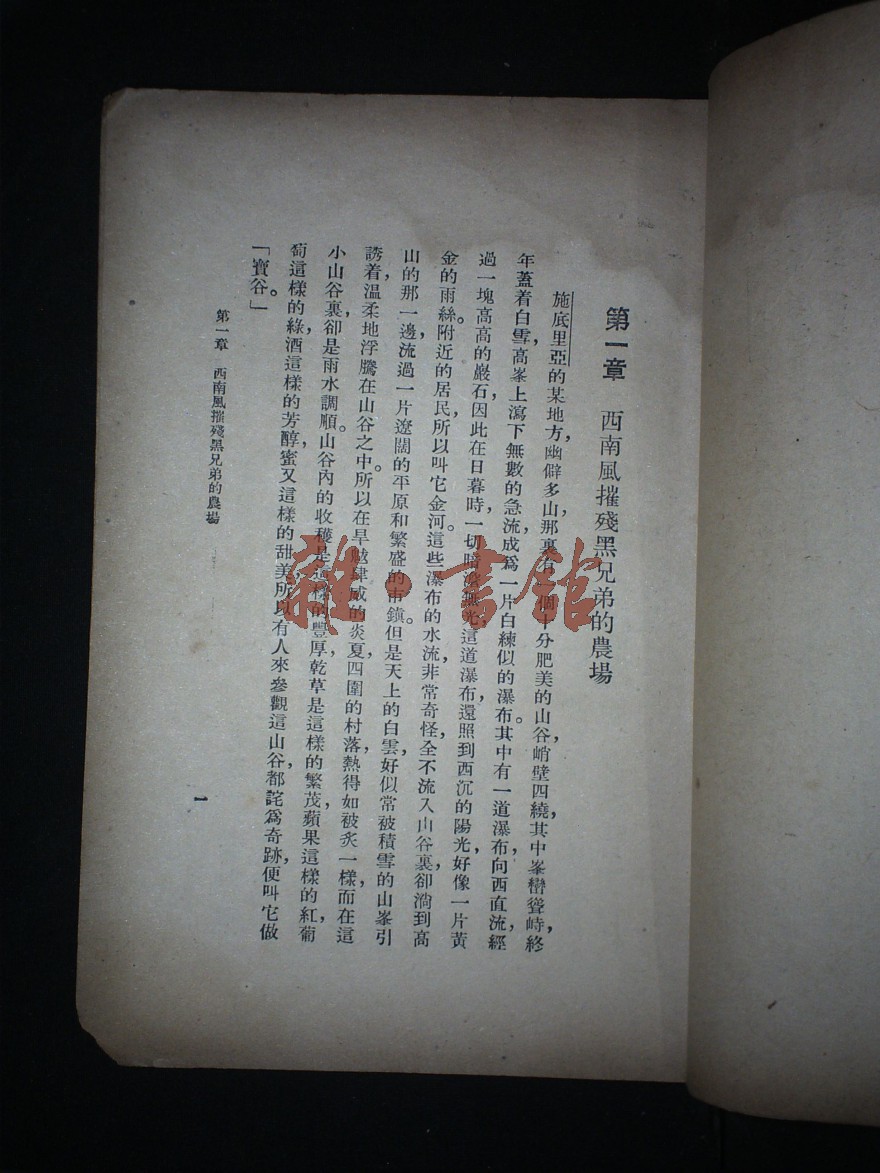 第一章　西南風摧殘黑兄弟的農場
施底里亞的某地方，幽僻多山那裏有一個十分肥美的山谷，峭壁四繞，其中峯巒聳峙，終
年蓋着白雪，高峯上瀉下無數的急流，成爲一片白練似的瀑布。其中有一道瀑布，向西直流，經
過一塊高高的巖石，因此在日暮時，一切暗淡無光，這道瀑布，還照到西沉的陽光，好像一片黃
金的雨絲。附近的居民，所以叫它金河。這些瀑布的水流，非常奇怪，全不流入山谷裏，卻淌到高
山的那一邊，流過一片遼闊的平原和繁盛的市鎮。但是天上的白雲，好似常被積雪的山峯引
誘着，溫柔地浮騰在山谷之中。所以在旱魃肆威的炎夏，四圍的村落，熱得如被炙一樣，而在這
小山谷裏，卻是雨水調順。山谷內的收穫是這樣的豐厚，乾草是這樣的繁茂，蘋果這樣的紅，葡
萄這樣的綠，酒這樣的芳醇，蜜又這樣的甜美，所以有人來參觀這山谷，都詫爲奇跡，便叫它做
「寶谷。」
第一章　西南風摧殘黑兄弟的農場
一
雜·書館